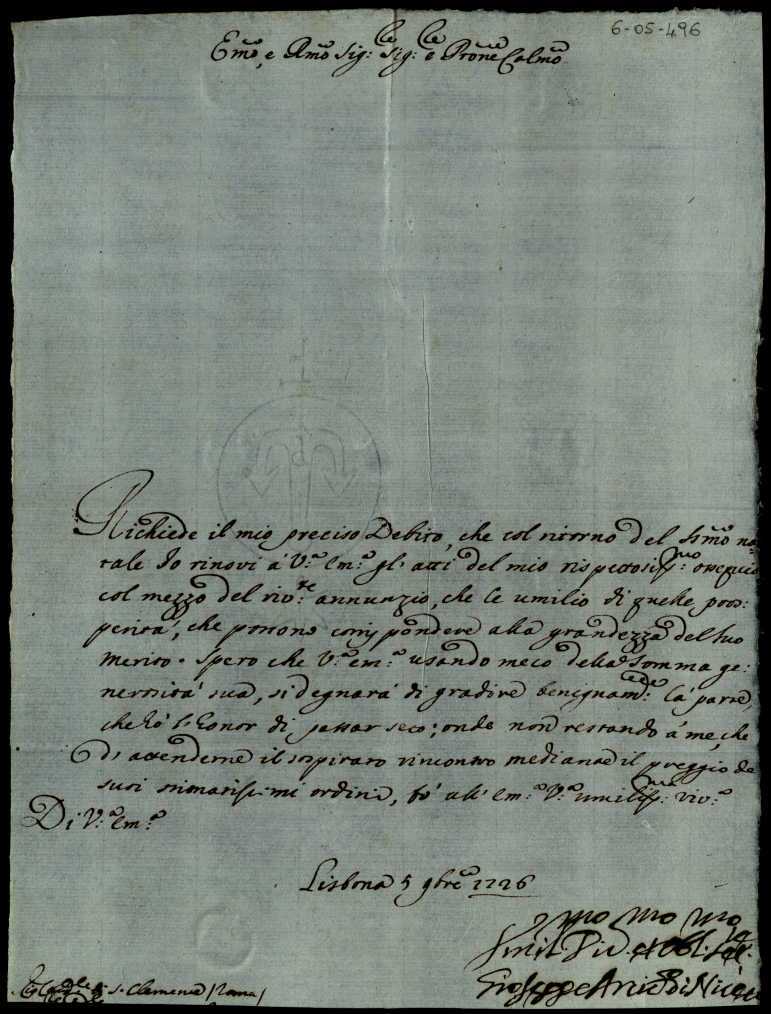 6-05-496
Emo, e Rmo Sig: Sig: e Prone Colmo
Richiede il mio preciso Debito, che col ritorno del Smo na=
tale Io rinovi á V.a Em.a gl' atti del mio rispettosiss.mo ossequio
col mezzo del riv.te annunzio, che le umilio di quelle pros=
perità, che possono corrispondere alla grandezza del suo
merito. Spero che V.a em.a usando meco della somma ge:
nerosità sua, si degnarà di gradire benignam.te la parte,
che hò l'honor di passar seco; onde non restando á me, che
d'attenderne il sospirato rincontro mediante il preggio de
suoi stimatissimi ordini, fò all' em.a V.a umiliss.ma riv.a
Di V.a em.a
Lisbona 5 9bre 1726
mo mo mo
Giuseppe
S. Clemente /Roma/